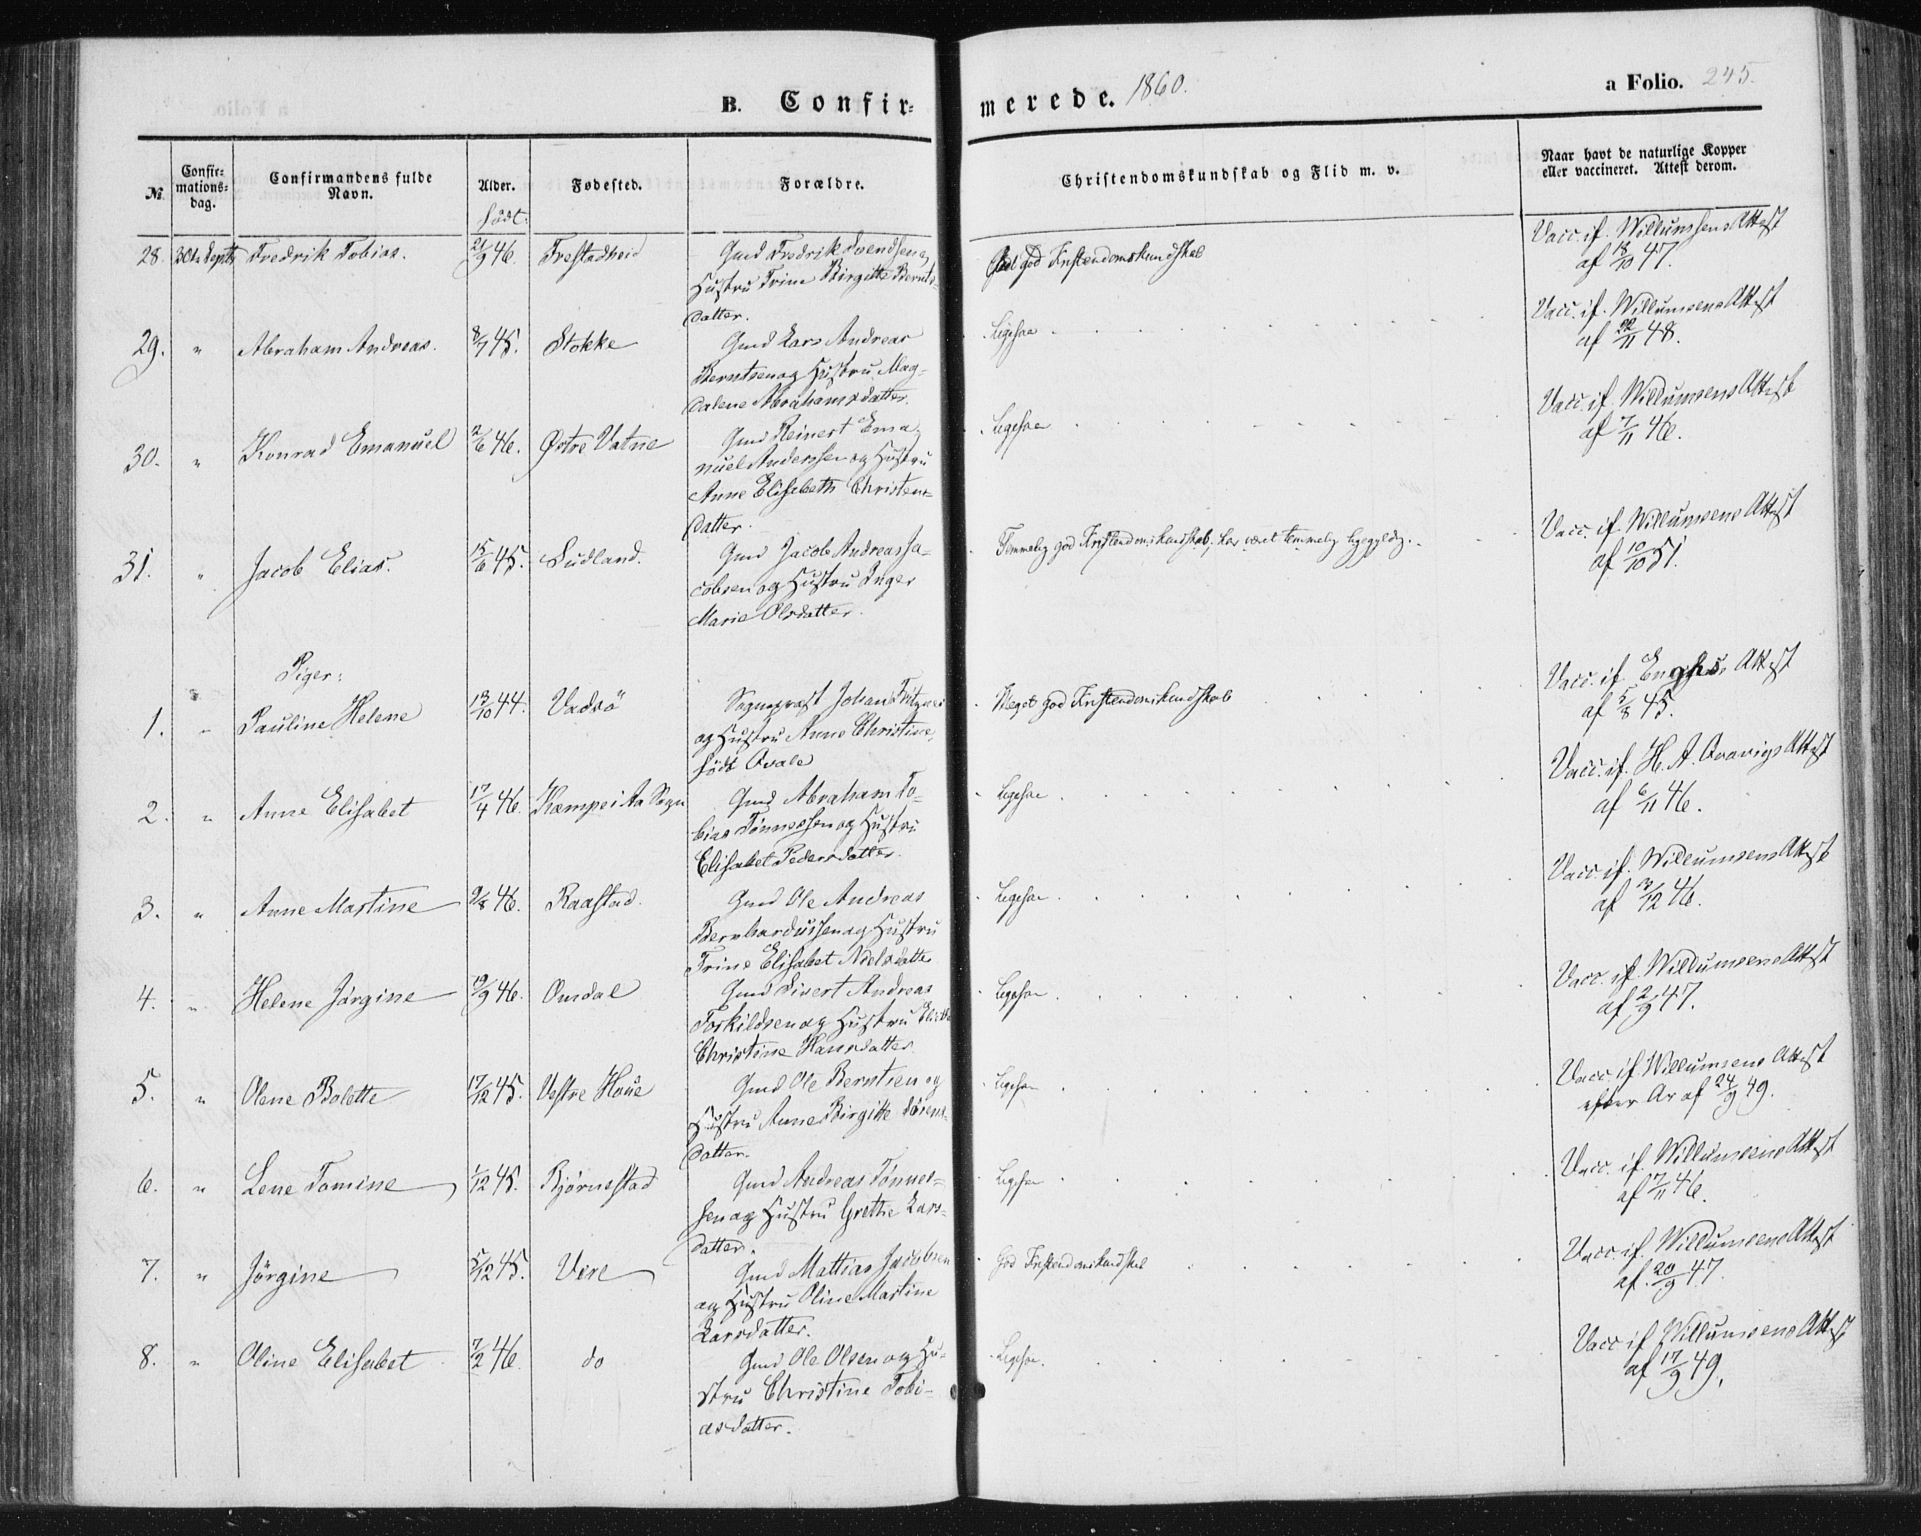 B. Confir-
merede. 1860.
a Folio. 245.
№
Confir-
mations-
dag.
Confirmandens fulde
Navn.
Alder.
födt.
Fødested.
Forældre.
Christendomskundskab og Flid m. v.
Naar havt de naturlige Kopper
eller vaccineret. Attest derom.
28. 30te Septb Fredrik Tobias. 21/9 46. Frestadheid
Gmd Fredrik Svendsen og
Hustru Trine Birgitte Bernts-
datter.
god Kristendomskundskab
Vacc. if. Willumsens Attest
af 18/10 47.
29. " Abraham Andreas. 8/7 45. Stokke
Gmd Lars Andreas
Berntsen og Hustru Mag-
dalene Abrahamsdatter.
Ligesaa
Vacc. if. Willumsens Attest
af 22/11 48.
30. " Konrad Emanuel 2/6 46. Østre Vatne
Gmd Reinert Ema-
nuel Anderssen og Hustru
Anne Elisabeth Christens-
datter.
Ligesaa
Vacc. if. Willumsens Attest
af 7/11 46.
31. " Jacob Elias. 15/6 45. Sudland.
Gmd Jacob Andreas Ja-
cobsen og Hustru Inger
Marie Olsdatter.
Temmelig god Kristendomskundskab, har været temmelig ligegyldig.
Vacc. if. Willumsens Attest
af 10/10 51.
Piger:
1. " Pauline Helene 13/10 44. Vadsö
Sognepræst Johan Fritzner
og Hustru Anne Christine,
födt Qvale
Meget god Kristendomskundskab
Vacc. if. Enghs Attest
af 5/8 45.
2. " Anne Elisabet 17/4 46. Kampe i Aa Sogn
Gmd Abraham To-
bias Tönnessen og Hustru
Elisabet Pedersdatter.
Ligesaa
Vacc. if. H. A. Qvavigs Attest
af 6/11 46.
3. " Anne Martine 9/8 46. Raastad.
Gmd Ole Andreas
Bernhardussen og Hustru
Trine Elisabet Nielsdatter
Ligesaa
Vacc. if. Willumsens Attest
af 3/12 46.
4. " Helene Jörgine 19/9 46. Omdal
Gmd Sivert Andreas
Torkildsen og Hustru
Christine Hansdatter
Ligesaa
Vacc. if. Willumsens Attest
af 2/9 47.
5. " Olene Bolette 17/12 45. Vestre Houe
Gmd Ole Berntsen og
Hustru Anne Birgitte Sörens-
datter.
Ligesaa
Vacc. if. Willumsens Attest
efter Ar af 24/9 49.
6. " Lene Tomine 1/12 45. Bjørnestad
Gmd Andreas Tønnes-
sen og Hustru Grethe Lars-
datter.
Ligesaa
Vacc. if. Willumsens Attest
af 7/11 46.
7. " Jörgine 5/12 45. Vere
Gmd Mattias Jacobsen
og Hustru Oline Martine
Larsdatter.
God Kristendomskundskab
Vacc. if. Willumsens Attest
af 20/9 47.
8. " Oline Elisabet 7/2 46. do
Gmd Ole Olsen og Hu-
stru Christine Tobi-
asdatter.
Ligesaa.
Vacc. if. Willumsens Attest
af 17/9 49.